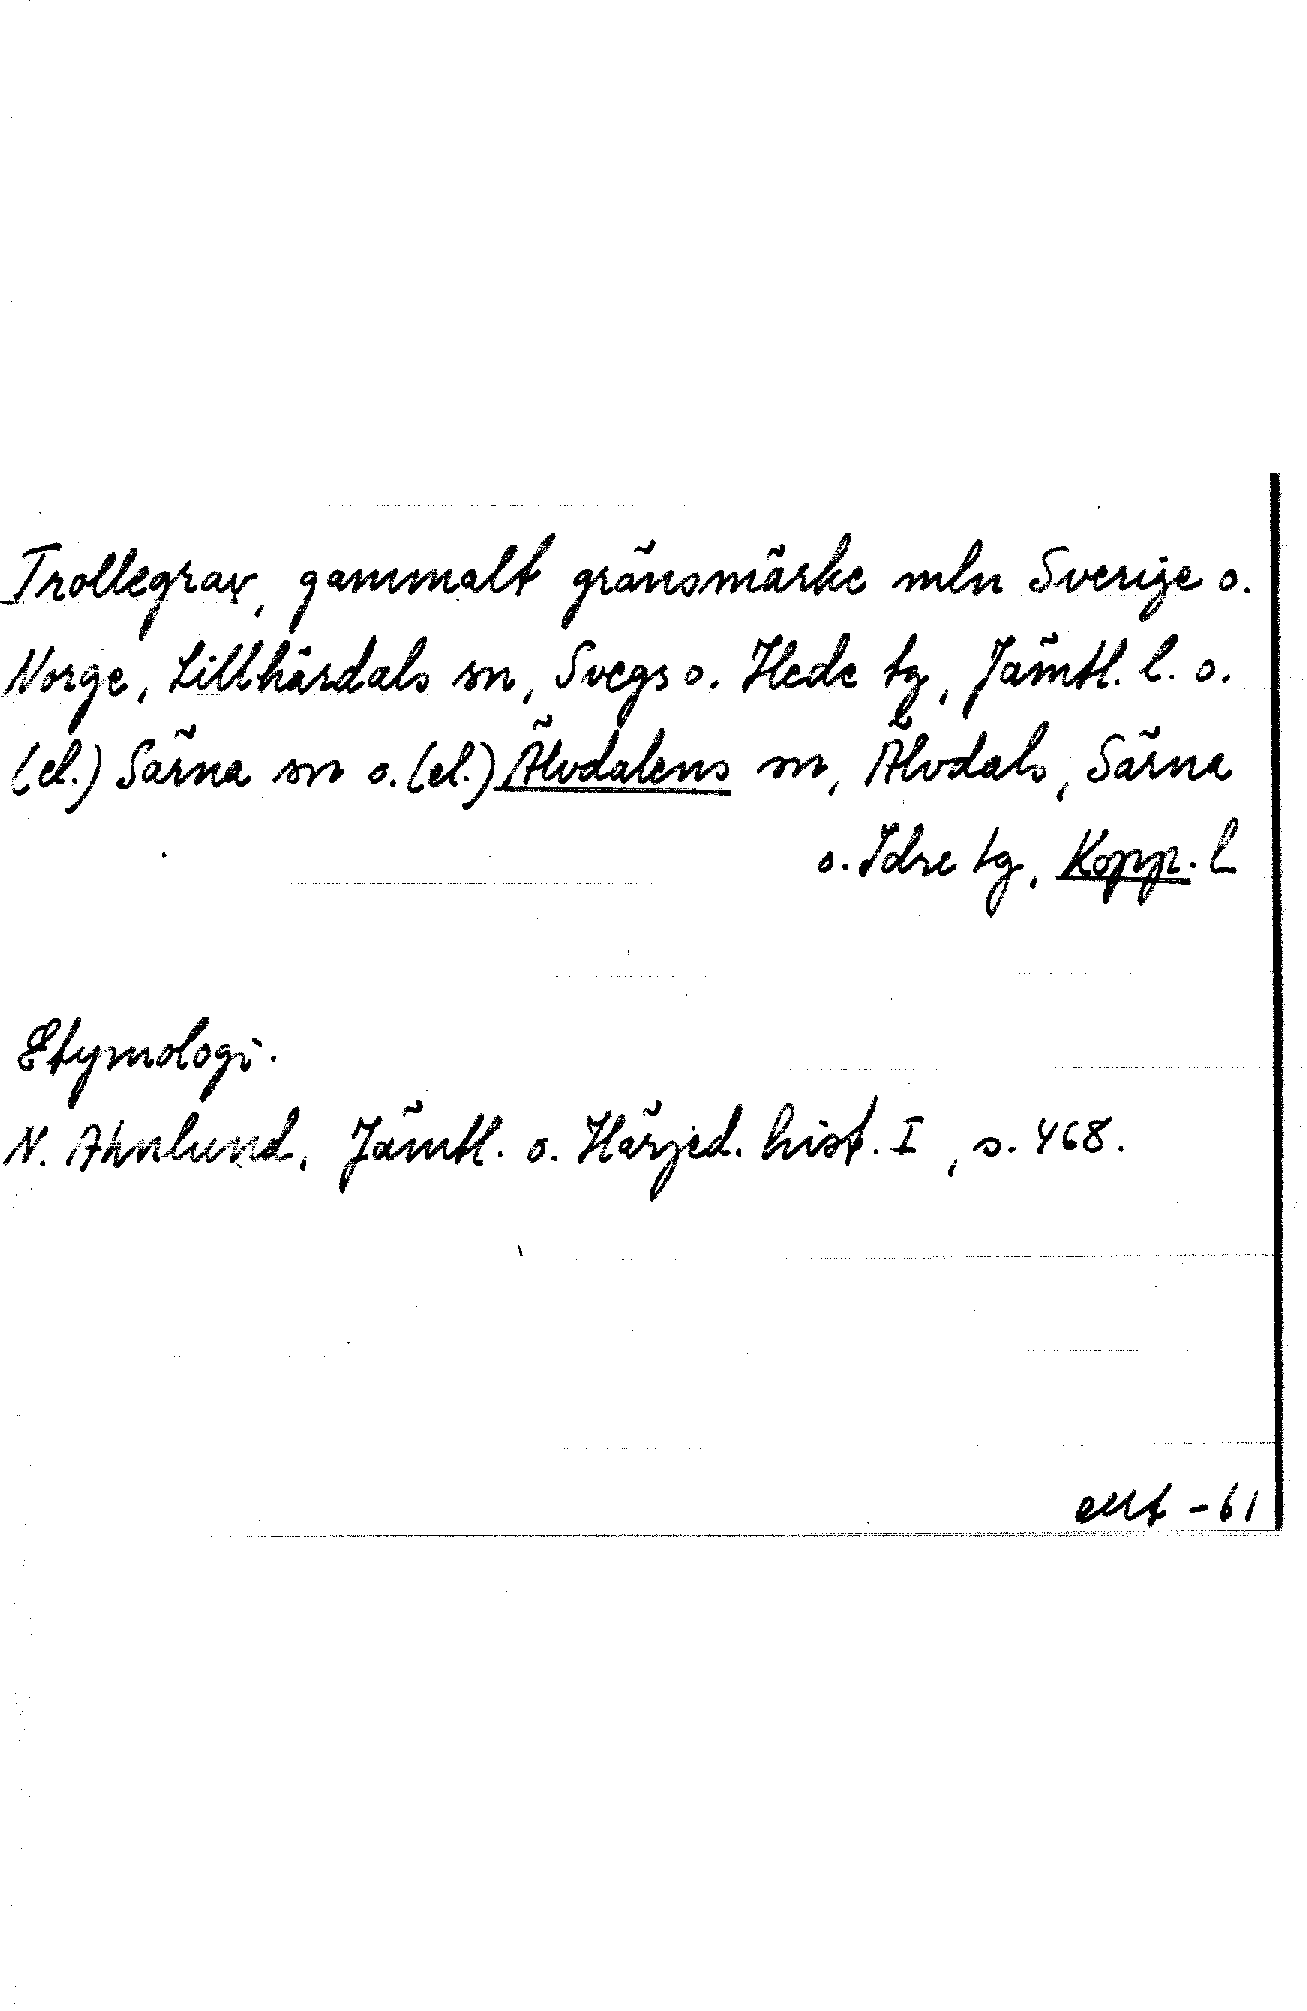 Trollegrav, gammalt gränsmärke mln Sverige o.
Norge, Lillhärdals sn, Svegs o. Hede tg, Jämtl. l. o.
(el.) Särna sn o. (el.) Älvdalens sn, Älvdals, Särna
o. Idre tg, Kopp. l
Etymologi.
N. Ahnlund, Jämtl. o. Härjed. hist. I, s. 468.
-61